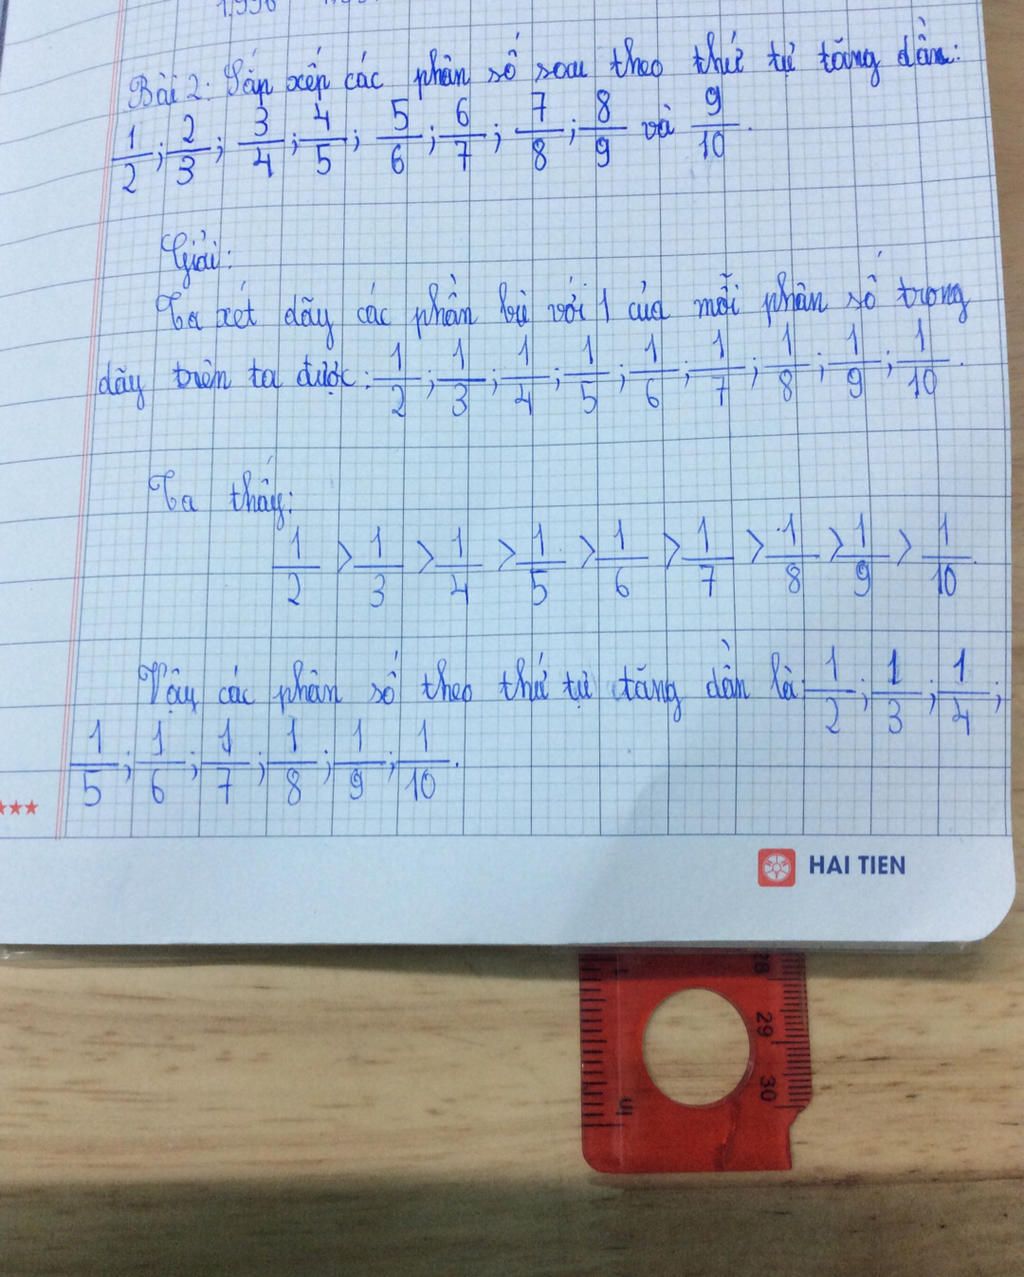 Bài 2: Sắp xếp các phân số sau theo thứ tự tăng dần:
1/2; 2/3; 3/4; 4/5; 5/6; 6/7; 7/8; 8/9 và 9/10.
Giải:
Ta xét dãy các phần bù với 1 của mỗi phân số trong
dãy trên ta được: 1/2; 1/3; 1/4; 1/5; 1/6; 1/7; 1/8; 1/9; 1/10.
Ta thấy:
1/2 > 1/3 > 1/4 > 1/5 > 1/6 > 1/7 > 1/8 > 1/9 > 1/10.
Vậy các phân số theo thứ tự tăng dần là 1/2; 1/3; 1/4;
1/5; 1/6; 1/7; 1/8; 1/9; 1/10.
HAI TIEN
29
30